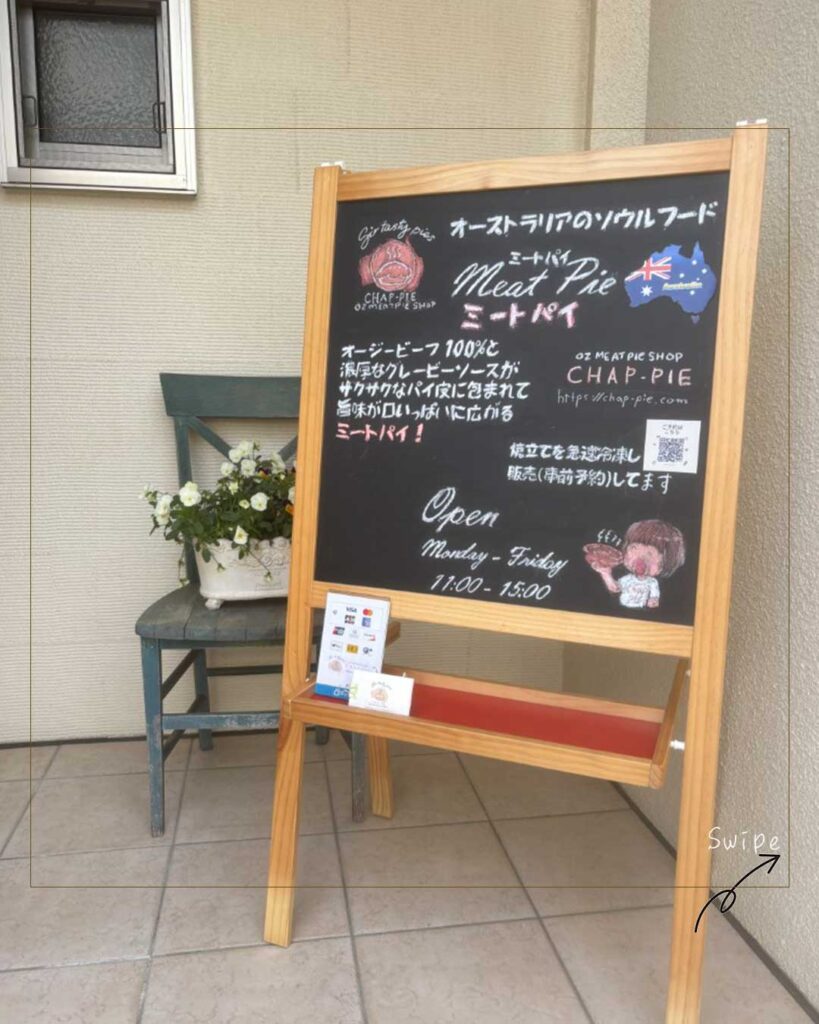 Gir tasty pies
CHAP-PIE
OZ MEAT PIE SHOP
オーストラリアのソウルフード
ミートパイ
Meat Pie
ミートパイ
オージービーフ100%と
濃厚なグレービーソースが
サクサクなパイ皮に包まれて
旨味が口いっぱいに広がる
ミートパイ!
OZ MEAT PIE SHOP
CHAP-PIE
https://chap-pie.com
ご予約は
こちら
焼立てを急速冷凍し
販売(事前予約)してます
Open
Monday - Friday
11:00 - 15:00
VISA
Swipe